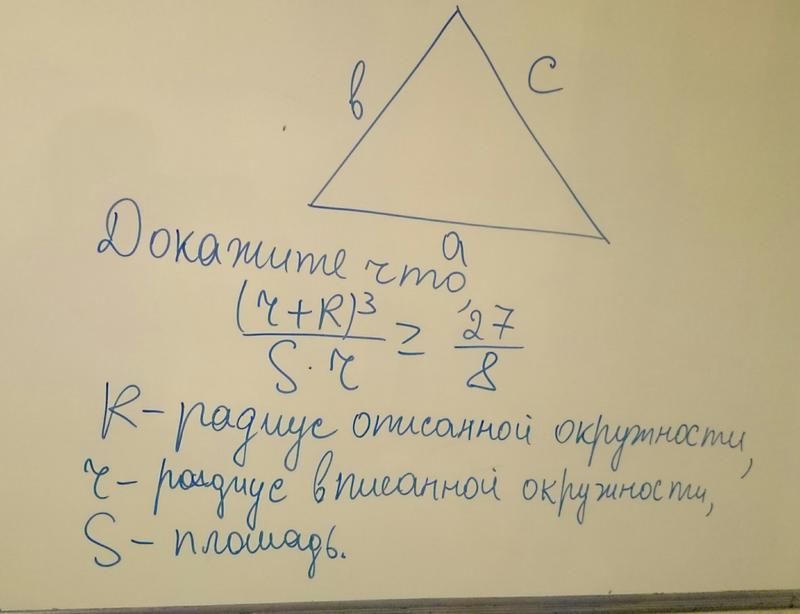 в
c
a
Докажите что,
(r+R)³ / S·r ≥ 27/8
R – радиус описанной окружности,
r – радиус вписанной окружности,
S – плошадь.